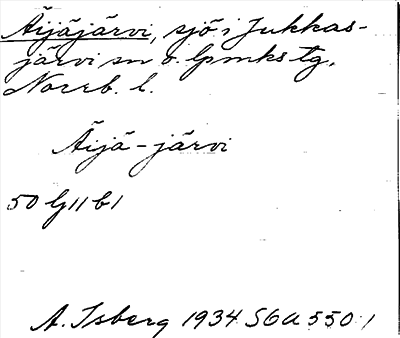 Äijäjärvi, sjö i Jukkas-
järvi sn o. lpmks tg,
Norrb. l.
Äijä-järvi
50 G11 b1
A. Isberg 1934 SGA 550:1